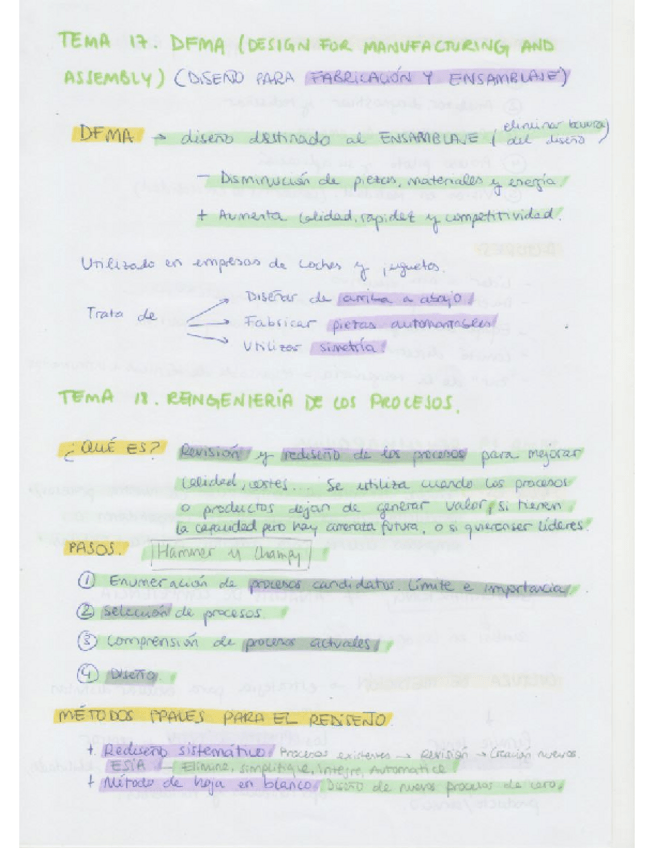 TEMA 17. DFMA (DESIGN FOR MANUFACTURING AND
ASSEMBLY) (DISEÑO PARA FABRICACIÓN Y ENSAMBLAJE)
DFMA → diseño destinado al ENSAMBLAJE (eliminar
del diseño)
- Disminución de piezas, materiales y energía
+ Aumenta calidad, rapidez y competitividad.
Utilizado en empresas de coches y juguetes.
Trata de
→ Diseñar de arriba a abajo
→ Fabricar piezas automontables
→ Utilizar simetría
TEMA 18. REINGENIERÍA DE LOS PROCESOS.
¿QUÉ ES? Revisión y rediseño de los procesos para mejorar
calidad, costes... Se utiliza cuando los procesos
o productos dejan de generar valor, si tienen
la capacidad pero hay amenaza futura, o si quieren ser líderes.
PASOS. Hammer y Champy
① Enumeración de procesos candidatos, límite e importancia
② Selección de procesos
③ Comprensión de procesos actuales
④ Diseño.
MÉTODOS PPALES PARA EL REDISEÑO
+ Rediseño sistemático: Procesos existentes → Revisión → Creación nuevos.
ESIA → Elimine, simplifique, integre, Automatice
+ Método de hoja en blanco: Diseño de nuevos procesos de cero.